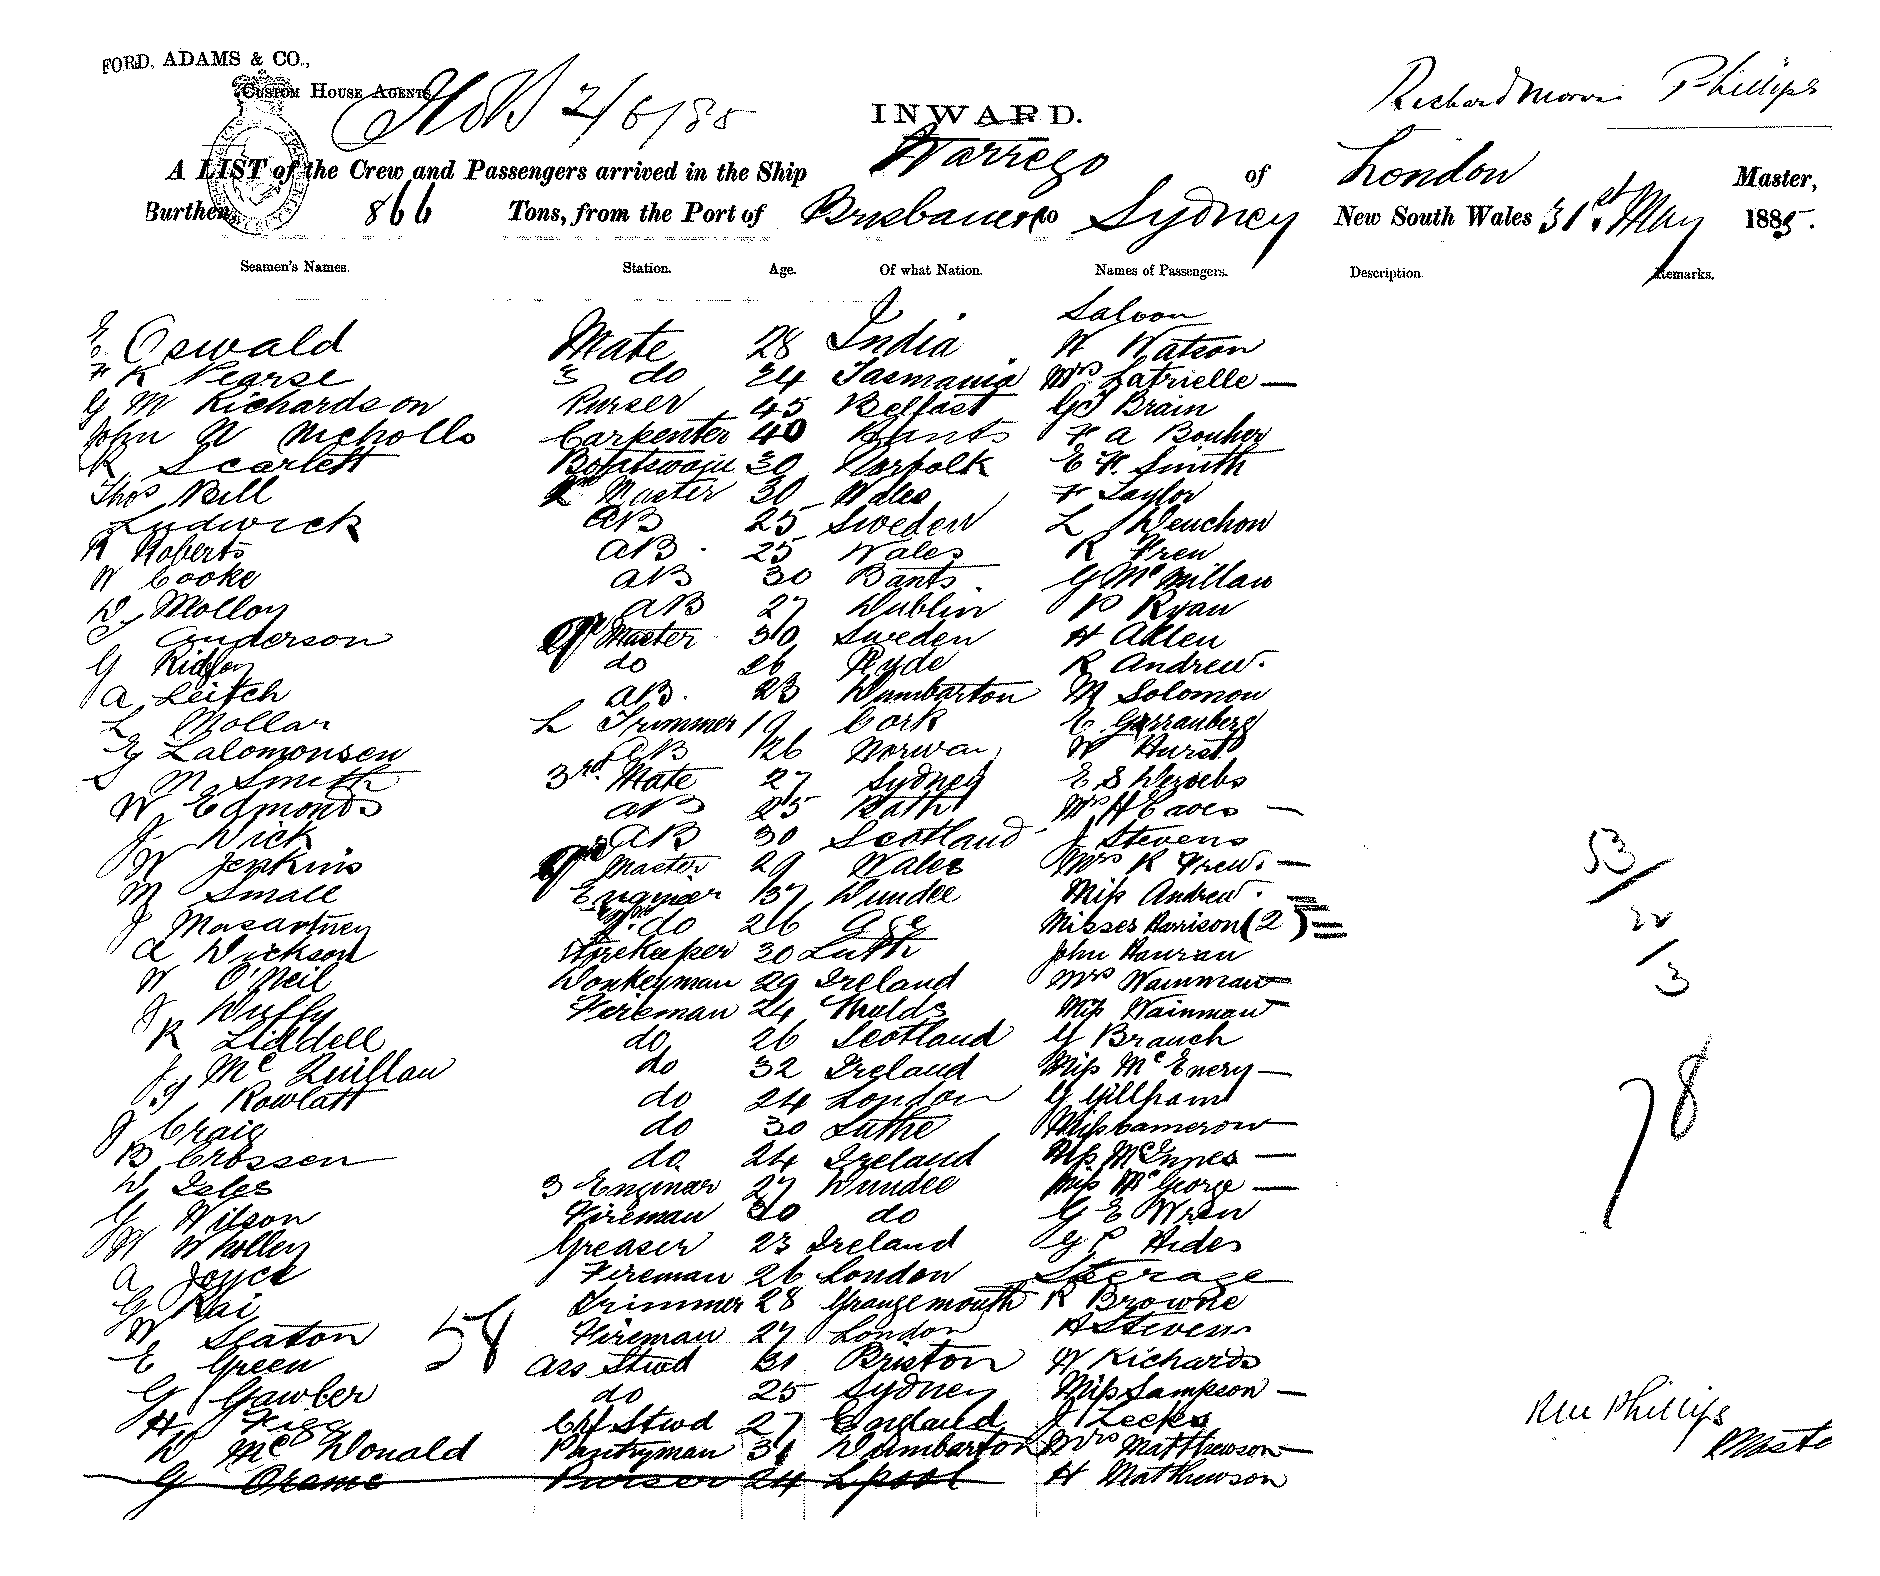 FORD, ADAMS & CO.,
CUSTOM HOUSE AGENTS
2/6/85
INWARD.
Richard Morris Phillips
A LIST of the Crew and Passengers arrived in the Ship Warrego of London Master,
Burthen 866 Tons, from the Port of Brisbane to Sydney New South Wales 31st May 1885.
Seamen's Names. Station. Age. Of what Nation. Names of Passengers. Description. Remarks.
Saloon
E Oswald Mate 28 India W Watson
F K Pearse 2 do 24 Tasmania Mrs Latrielle —
G M Richardson Purser 45 Belfast G J Brain
John W Nicholls Carpenter 40 Hants F A Bouher
R Scarlett Boatswain 30 Norfolk E W Smith
Thos Bill Master 30 Wales F Taylor
Ludwick AB 25 Sweden L
R Roberts AB 25 Wales R Frew
W Cooke AB 30 Bants G McMillan
D Molloy AB 27 Dublin P Ryan
C Anderson Qr Master 30 Sweden H Allen
G Ridley do 26 Ryde R Andrew.
A Leitch AB. 23 Dumbarton M Solomon
L Mollar L Trimmer 19 Cork E
G Lalomonsen AB 26 Norway W Hurst
M Smith 3rd Mate 27 Sydney E S
W Edmonds AB 25 Bath Mrs H Eaves —
J Dick AB 30 Scotland J Stevens
W Jenkins Qr Master 29 Wales Mrs R Frew. —
M Small Engineer 37 Dundee Miss Andrew.
J Macartney 2nd do 26 Misses Harrison (2)
A Dickson Storekeeper 30 Luth John Hanran
W O'Neil Donkeyman 29 Ireland Mrs Wainman
J Duffy Fireman 24 Miss Wainman
R Liddell do 26 Scotland G Branch
J McQuillan do 32 Ireland Miss McEnery —
J G Rowlatt do 24 London G Gillham
J Craig do 30 Luthe Miss Camerow
B Crossen do 24 Ireland Miss McInnes —
D Isles 3 Engineer 27 Dundee Miss McGeorge —
G Wilson Fireman 30 do G E Wren
W Wholley Greaser 23 Ireland G P Hides
A Joyce Fireman 26 London Sterage
G Rai Trimmer 28 Grangemouth R Browne
W Seaton Fireman 27 London A Stevens
E Green Ass Stwd 31 Briston W Richards
G Gawler do 25 Sydney Miss Sampson —
H Figg Chf Stwd 27 England J Leeks
D McDonald Pantryman 31 Dumbarton Mrs Matthewson
G Orame Purser 24 Lpool H Mathewson
58
53
22
3
78
RM Phillips
Master